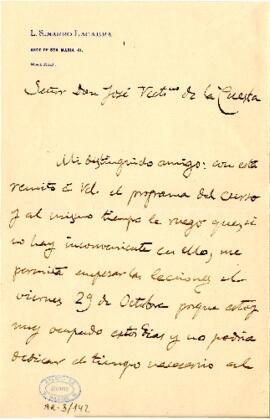 L. SIMARRO LACABRA
ARCO DE STA MARIA 41.
MADRID.
Señor Don José Vect.no de la Cuesta
Mi distinguido amigo: con esta
remito á Vd. el programa del curso
y al mismo tiempo le ruego que si
no hay inconveniente en ello, me
permita empezar las lecciones el
viernes 29 de Octubre porque estoy
muy ocupado estos dias y no podria
dedicar el tiempo necesario al
AR-3/142